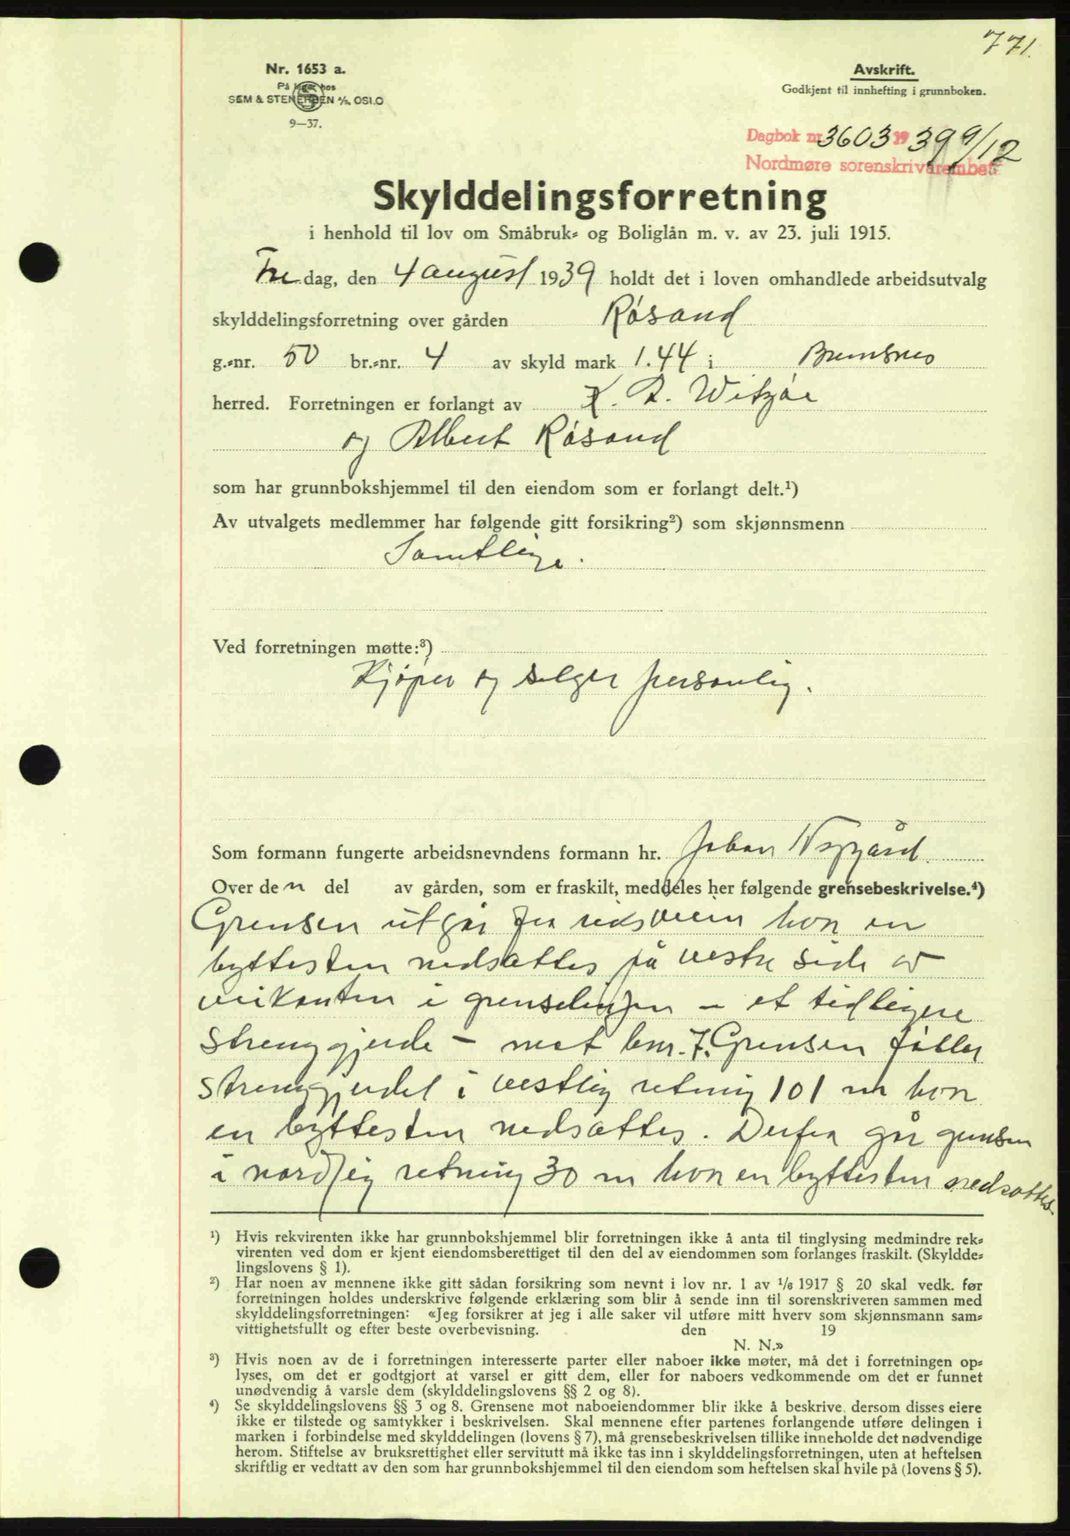 771.
Nr. 1653 a.
På lager hos
SEM & STENERSEN A/S, OSLO
9—37.
Avskrift.
Godkjent til innhefting i grunnboken.
Dagbok nr. 3603 1939 9/12
Nordmøre sorenskriverembet
Skylddelingsforretning
i henhold til lov om Småbruk- og Boliglån m. v. av 23. juli 1915.
Fredag, den 4 august 1939 holdt det i loven omhandlede arbeidsutvalg
skylddelingsforretning over gården Røsand
g.-nr. 50 br.-nr. 4 av skyld mark 1.44 i Bremsnes
herred. Forretningen er forlangt av K. A. Witzøe
og Albert Røsand
som har grunnbokshjemmel til den eiendom som er forlangt delt.¹)
Av utvalgets medlemmer har følgende gitt forsikring²) som skjønnsmenn
Samtlige.
Ved forretningen møtte:³)
Kjøper og selger personlig.
Som formann fungerte arbeidsnevndens formann hr. Johan
Over den del av gården, som er fraskilt, meddeles her følgende grensebeskrivelse.⁴)
Grensen utgår fra riksveien hvor en
byttesten nedsættes på vestre side av
veikanten i grenselinjen – et tidligere
strenggjerde – mot bnr. 7. Grensen følller
strenggjerdet i vestlig retning 101 m hvor
en byttesten nedsættes. Derfra går grensen
i nordlig retning 30 m hvor en byttesten nedsættes
¹) Hvis rekvirenten ikke har grunnbokshjemmel blir forretningen ikke å anta til tinglysing medmindre rek-
virenten ved dom er kjent eiendomsberettiget til den del av eiendommen som forlanges fraskilt. (Skyldde-
lingslovens § 1).
²) Har noen av mennene ikke gitt sådan forsikring som nevnt i lov nr. 1 av 1/6 1917 § 20 skal vedk. før
forretningen holdes underskrive følgende erklæring som blir å sende inn til sorenskriveren sammen med
skylddelingsforretningen: «Jeg forsikrer at jeg i alle saker vil utføre mitt hverv som skjønnsmann sam-
vittighetsfullt og efter beste overbevisning. den 19
N. N.»
³) Hvis noen av de i forretningen interesserte parter eller naboer ikke møter, må det i forretningen op-
lyses, om det er godtgjort at varsel er gitt dem, eller for naboers vedkommende om det er funnet
unødvendig å varsle dem (skylddelingslovens §§ 2 og 8).
⁴) Se skylddelingslovens §§ 3 og 8. Grensene mot naboeiendommer blir ikke å beskrive, dersom disses eiere
ikke er tilstede og samtykker i beskrivelsen. Skal mennene efter partenes forlangende utføre delingen i
marken i forbindelse med skylddelingen (lovens § 7), må grensebeskrivelsen tillike inneholde det nødvendige
herom. Stiftelse av bruksrettighet eller servitutt må ikke tas inn i skylddelingsforretningen, uten at heftelsen
skriftlig er vedtatt av den som har grunnbokshjemmel til den eiendom som heftelsen skal hvile på (lovens § 5).